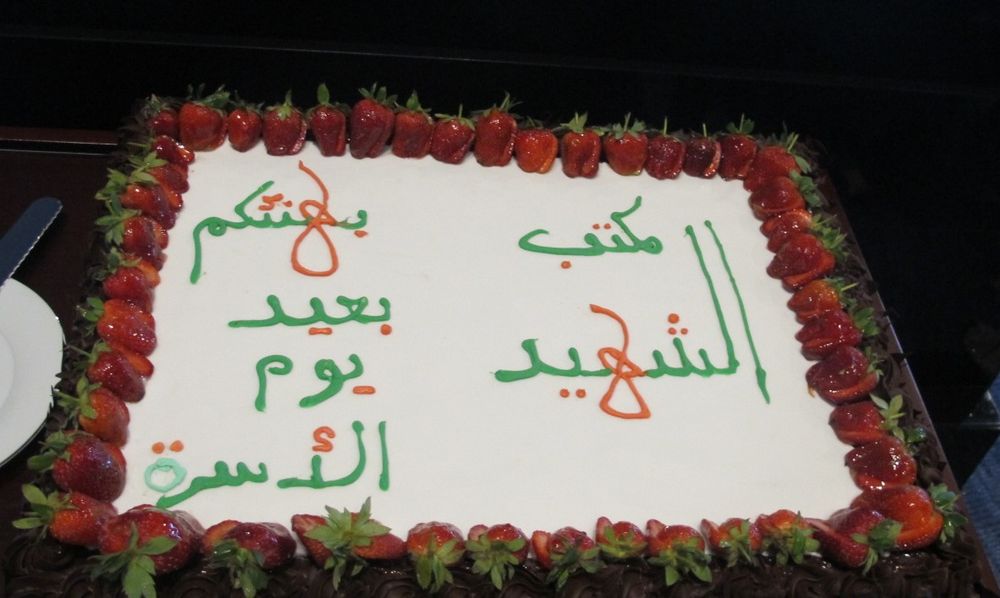 مكتب
الشهيد
يهنئكم
بعيد
يوم
الأسرة